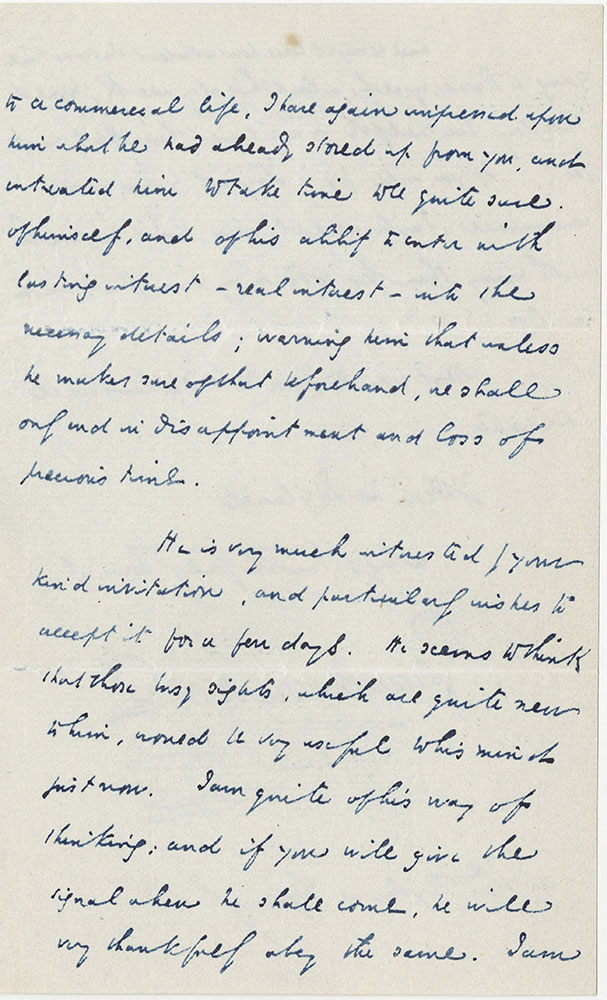 to a commercial life, I have again impressed upon
him what he had already stored up from you, and
entreated him to take time to be quite sure
of himself, and of his ability to enter with
lasting interest – real interest – into the
necessary details; warning him that unless
he makes sure of that beforehand, he shall
only end in disappointment and loss of
precious time.
He is very much interested by your
kind invitation, and particularly wishes to
accept it for a few days. He seems to think
that those busy sights, which are quite new
to him, would be very useful to his mind
just now. I am quite of his way of
thinking; and if you will give the
signal when he shall come, he will
very thankfully obey the same. I am